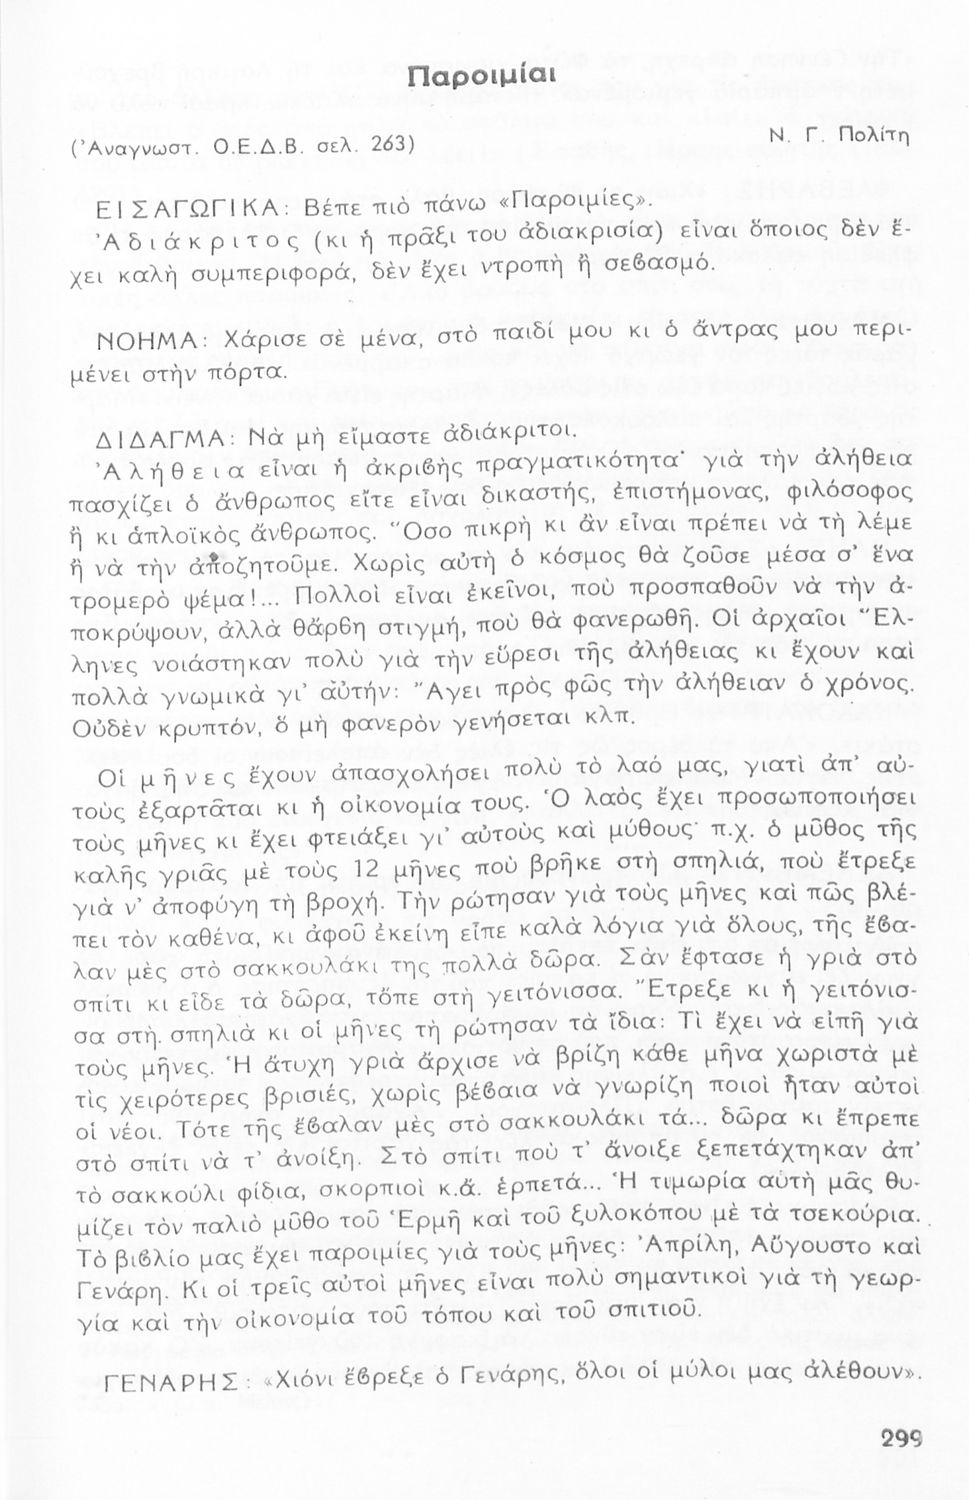 Παροιμίαι
('Αναγνωστ. Ο.Ε.Δ.Β. σελ. 263)
Ν. Γ. Πολίτη
ΕΙΣΑΓΩΓΙΚΑ: Βέπε πιὸ πάνω «Παροιμίες».
'Αδιάκριτος (κι ἡ πρᾶξι του ἀδιακρισία) εἶναι ὅποιος δὲν ἔ-
χει καλὴ συμπεριφορά, δὲν ἔχει ντροπὴ ἢ σεβασμό.
ΝΟΗΜΑ: Χάρισε σὲ μένα, στὸ παιδί μου κι ὁ ἄντρας μου περι-
μένει στὴν πόρτα.
ΔΙΔΑΓΜΑ: Νὰ μὴ εἴμαστε ἀδιάκριτοι.
'Αλήθεια εἶναι ἡ ἀκριβὴς πραγματικότητα· γιὰ τὴν ἀλήθεια
πασχίζει ὁ ἄνθρωπος εἴτε εἶναι δικαστής, ἐπιστήμονας, φιλόσοφος
ἢ κι ἁπλοϊκὸς ἄνθρωπος. "Οσο πικρὴ κι ἂν εἶναι πρέπει νὰ τὴ λέμε
ἢ νὰ τὴν ἀποζητοῦμε. Χωρὶς αὐτὴ ὁ κόσμος θὰ ζοῦσε μέσα σ' ἕνα
τρομερὸ ψέμα!... Πολλοὶ εἶναι ἐκεῖνοι, ποὺ προσπαθοῦν νὰ τὴν ἀ-
ποκρύψουν, ἀλλὰ θἄρθη στιγμή, ποὺ θὰ φανερωθῆ. Οἱ ἀρχαῖοι "Ελ-
ληνες νοιάστηκαν πολὺ γιὰ τὴν εὕρεσι τῆς ἀλήθειας κι ἔχουν καὶ
πολλὰ γνωμικὰ γι' αὐτήν: "Αγει πρὸς φῶς τὴν ἀλήθειαν ὁ χρόνος.
Οὐδὲν κρυπτόν, ὃ μὴ φανερὸν γενήσεται κλπ.
Οἱ μῆνες ἔχουν ἀπασχολήσει πολὺ τὸ λαό μας, γιατὶ ἀπ' αὐ-
τοὺς ἐξαρτᾶται κι ἡ οἰκονομία τους. 'Ο λαὸς ἔχει προσωποποιήσει
τοὺς μῆνες κι ἔχει φτειάξει γι' αὐτοὺς καὶ μύθους· π.χ. ὁ μῦθος τῆς
καλῆς γριᾶς μὲ τοὺς 12 μῆνες ποὺ βρῆκε στὴ σπηλιά, ποὺ ἔτρεξε
γιὰ ν' ἀποφύγη τὴ βροχή. Τὴν ρώτησαν γιὰ τοὺς μῆνες καὶ πῶς βλέ-
πει τὸν καθένα, κι ἀφοῦ ἐκείνη εἶπε καλὰ λόγια γιὰ ὅλους, τῆς ἔβα-
λαν μὲς στὸ σακκουλάκι της πολλὰ δῶρα. Σὰν ἔφτασε ἡ γριὰ στὸ
σπίτι κι εἶδε τὰ δῶρα, τὄπε στὴ γειτόνισσα. "Ετρεξε κι ἡ γειτόνισ-
σα στὴ σπηλιὰ κι οἱ μῆνες τὴ ρώτησαν τὰ ἴδια: Τὶ ἔχει νὰ εἰπῆ γιὰ
τοὺς μῆνες. 'Η ἄτυχη γριὰ ἄρχισε νὰ βρίζη κάθε μῆνα χωριστὰ μὲ
τὶς χειρότερες βρισιές, χωρὶς βέβαια νὰ γνωρίζη ποιοὶ ἦταν αὐτοὶ
οἱ νέοι. Τότε τῆς ἔβαλαν μὲς στὸ σακκουλάκι τά... δῶρα κι ἔπρεπε
στὸ σπίτι νὰ τ' ἀνοίξη. Στὸ σπίτι ποὺ τ' ἄνοιξε ξεπετάχτηκαν ἀπ'
τὸ σακκούλι φίδια, σκορπιοὶ κ.ἄ. ἑρπετά... 'Η τιμωρία αὐτὴ μᾶς θυ-
μίζει τὸν παλιὸ μῦθο τοῦ 'Ερμῆ καὶ τοῦ ξυλοκόπου μὲ τὰ τσεκούρια.
Τὸ βιβλίο μας ἔχει παροιμίες γιὰ τοὺς μῆνες: 'Απρίλη, Αὔγουστο καὶ
Γενάρη. Κι οἱ τρεῖς αὐτοὶ μῆνες εἶναι πολὺ σημαντικοὶ γιὰ τὴ γεωρ-
γία καὶ τὴν οἰκονομία τοῦ τόπου καὶ τοῦ σπιτιοῦ.
ΓΕΝΑΡΗΣ: «Χιόνι ἔβρεξε ὁ Γενάρης, ὅλοι οἱ μύλοι μας ἀλέθουν».
299